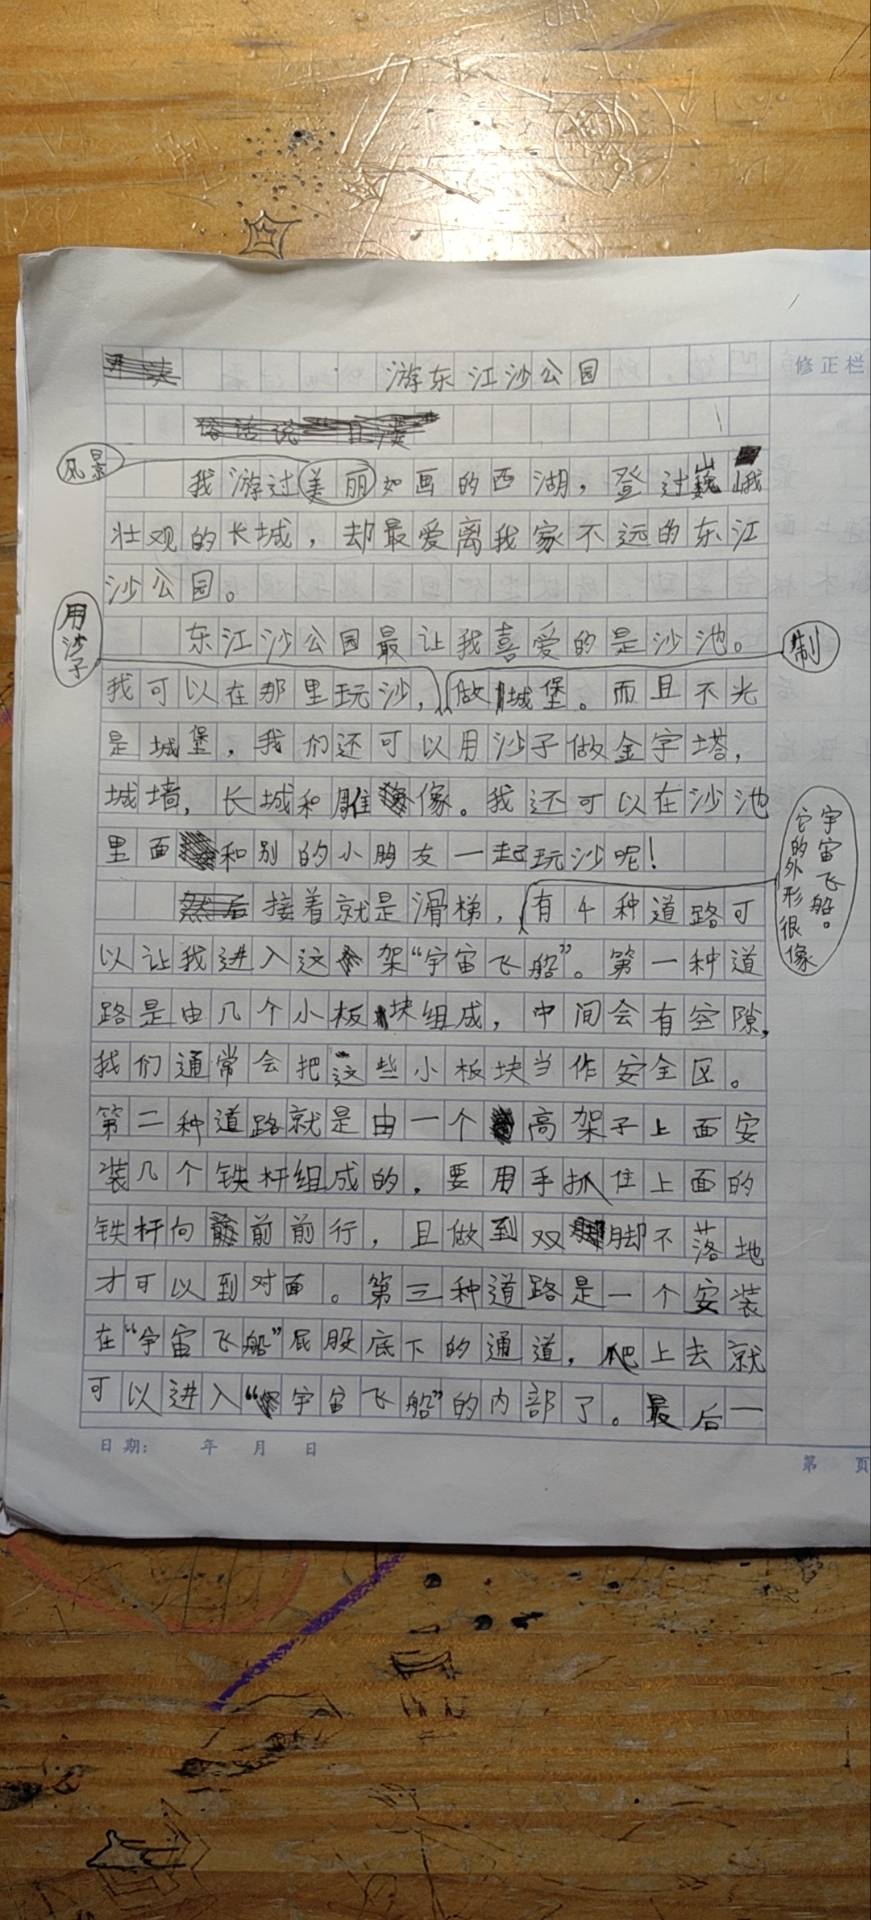 游东江沙公园
修正栏
风景
我游过美丽如画的西湖，登过巍峨
壮观的长城，却最爱离我家不远的东江
沙公园。
用沙子
东江沙公园最让我喜爱的是沙池。
制
我可以在那里玩沙，做城堡。而且不光
是城堡，我们还可以用沙子做金字塔，
城墙，长城和雕像。我还可以在沙池
里面和别的小朋友一起玩沙呢！
宇宙飞船。
它的外形很像
接着就是滑梯，有4种道路可
以让我进入这架“宇宙飞船”。第一种道
路是由几个小板块组成，中间会有空隙，
我们通常会把这些小板块当作安全区。
第二种道路就是由一个高架子上面安
装几个铁杆组成的．要用手抓住上面的
铁杆向前前行，且做到双脚不落地
才可以到对面。第三种道路是一个安装
在“宇宙飞船”屁股底下的通道，爬上去就
可以进入“宇宙飞船”的内部了。最后一
日期： 年 月 日
第 页